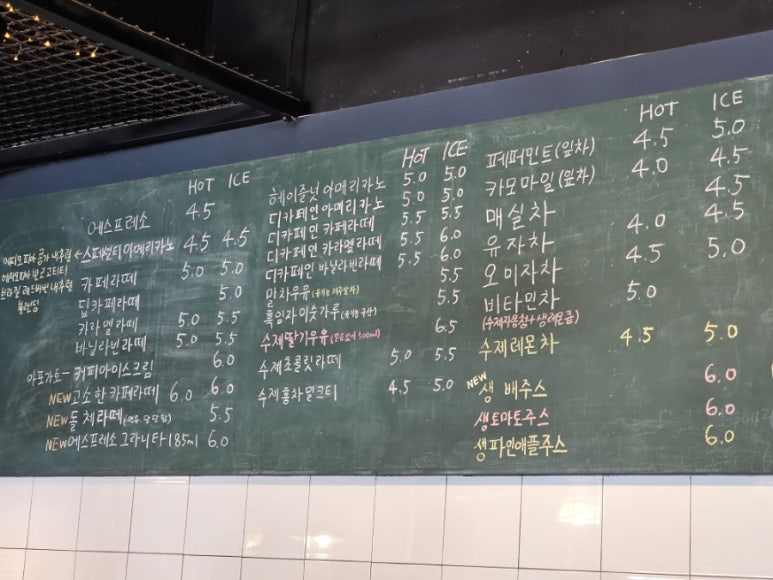 HOT ICE
에스프레소 4.5
스페셜티 아메리카노 4.5 4.5
카페라떼 5.0 5.0
딥카페라떼 5.0
카라멜라떼 5.0 5.5
바닐라빈라떼 5.0 5.5
아포가토 커피아이스크림 6.0
NEW 고소한 카페라떼 6.0 6.0
NEW 돌체라떼 5.5
NEW 에스프레소 그라니타 185ml 6.0
에티오피아
내추럴
블렌딩
HOT ICE
헤이즐넛 아메리카노 5.0 5.0
디카페인 아메리카노 5.0 5.0
디카페인 카페라떼 5.5 5.5
디카페인 카라멜라떼 5.5 6.0
디카페인 바닐라빈라떼 5.5 6.0
말차우유 5.5
흑임자 미숫가루 5.5
수제딸기우유 6.5
수제초콜릿라떼 5.0 5.5
수제홍차밀크티 4.5 5.0
HOT ICE
페퍼민트(잎차) 4.5 5.0
카모마일(잎차) 4.0 4.5
매실차 4.5
유자차 4.0 4.5
오미자차 4.5 5.0
비타민차 5.0
(수제자몽청+생레몬즙)
수제레몬차 4.5 5.0
NEW 생 배주스 6.0
생토마토주스 6.0
생파인애플주스 6.0